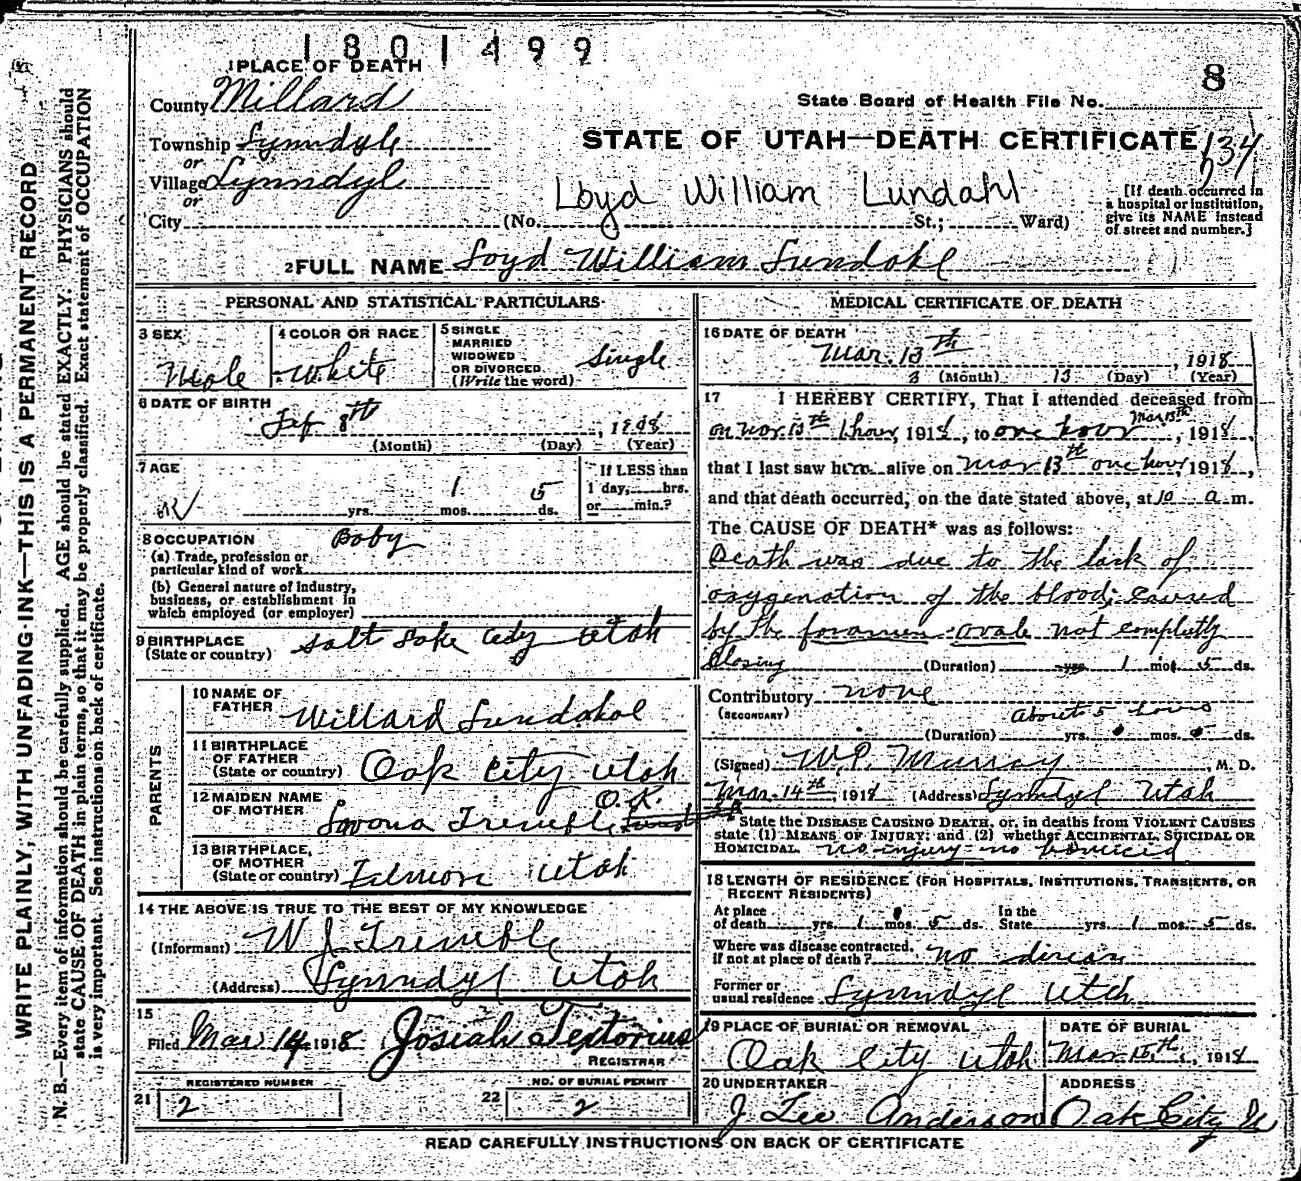 1801499
8
1 PLACE OF DEATH
County Millard
State Board of Health File No.
Township Lynndyle
or
STATE OF UTAH—DEATH CERTIFICATE 634
Village Lynndyl
or
Loyd William Lundahl
[If death occurred in
a hospital or institution,
give its NAME instead
of street and number.]
City (No. St.; Ward)
2 FULL NAME Loyd William Lundahl
PERSONAL AND STATISTICAL PARTICULARS
3 SEX
Male
4 COLOR OR RACE
White
5 SINGLE
MARRIED
WIDOWED
OR DIVORCED
(Write the word)
Single
6 DATE OF BIRTH
Feb 8th, 1918
(Month) (Day) (Year)
7 AGE
yrs. 1 mos. 5 ds.
If LESS than
1 day, hrs.
or min.?
8 OCCUPATION Baby
(a) Trade, profession or
particular kind of work
(b) General nature of industry,
business, or establishment in
which employed (or employer)
9 BIRTHPLACE
(State or country) Salt Lake City Utah
PARENTS
10 NAME OF
FATHER Willard Lundahl
11 BIRTHPLACE
OF FATHER
(State or country) Oak City Utah
12 MAIDEN NAME
OF MOTHER Lovona Tremble O.K.
13 BIRTHPLACE
OF MOTHER
(State or country) Filmore Utah
14 THE ABOVE IS TRUE TO THE BEST OF MY KNOWLEDGE
(Informant) W J Tremble
(Address) Lynndyl Utah
15
Filed Mar 14 1918 Josiah Textorius
REGISTRAR
REGISTERED NUMBER
21 2
NO. OF BURIAL PERMIT
22 2
MEDICAL CERTIFICATE OF DEATH
16 DATE OF DEATH
Mar. 13th, 1918
3 (Month) 13 (Day) (Year)
17 I HEREBY CERTIFY, That I attended deceased from
on Mar 13th 1 hour, 1918, to one hour Mar 13th, 1918,
that I last saw him alive on Mar 13th one hour, 1918,
and that death occurred, on the date stated above, at 10 a m.
The CAUSE OF DEATH* was as follows:
Death was due to the lack of
oxygenation of the blood; caused
by the foramen ovale not completly
closing (Duration) yrs. 1 mos. 5 ds.
Contributory none
(SECONDARY) about 5 hours
(Duration) yrs. 0 mos. 0 ds.
(Signed) W.P. Murray, M. D.
Mar. 14th, 1918 (Address) Lynndyl Utah
*State the DISEASE CAUSING DEATH, or, in deaths from VIOLENT CAUSES
state (1) MEANS OF INJURY; and (2) whether ACCIDENTAL, SUICIDAL OR
HOMICIDAL. no injury - no homicid
18 LENGTH OF RESIDENCE (FOR HOSPITALS, INSTITUTIONS, TRANSIENTS, OR
RECENT RESIDENTS)
At place
of death yrs. 1 mos. 5 ds.
In the
State yrs. 1 mos. 5 ds.
Where was disease contracted,
if not at place of death? no
Former or
usual residence Lynndyl Utah
19 PLACE OF BURIAL OR REMOVAL
Oak City Utah
DATE OF BURIAL
Mar. 15th, 1918
20 UNDERTAKER
J Lee Anderson
ADDRESS
Oak City U
READ CAREFULLY INSTRUCTIONS ON BACK OF CERTIFICATE
WRITE PLAINLY, WITH UNFADING INK—THIS IS A PERMANENT RECORD
N. B.—Every item of information should be carefully supplied. AGE should be stated EXACTLY. PHYSICIANS should
state CAUSE OF DEATH in plain terms, so that it may be properly classified. Exact statement of OCCUPATION
is very important. See instructions on back of certificate.